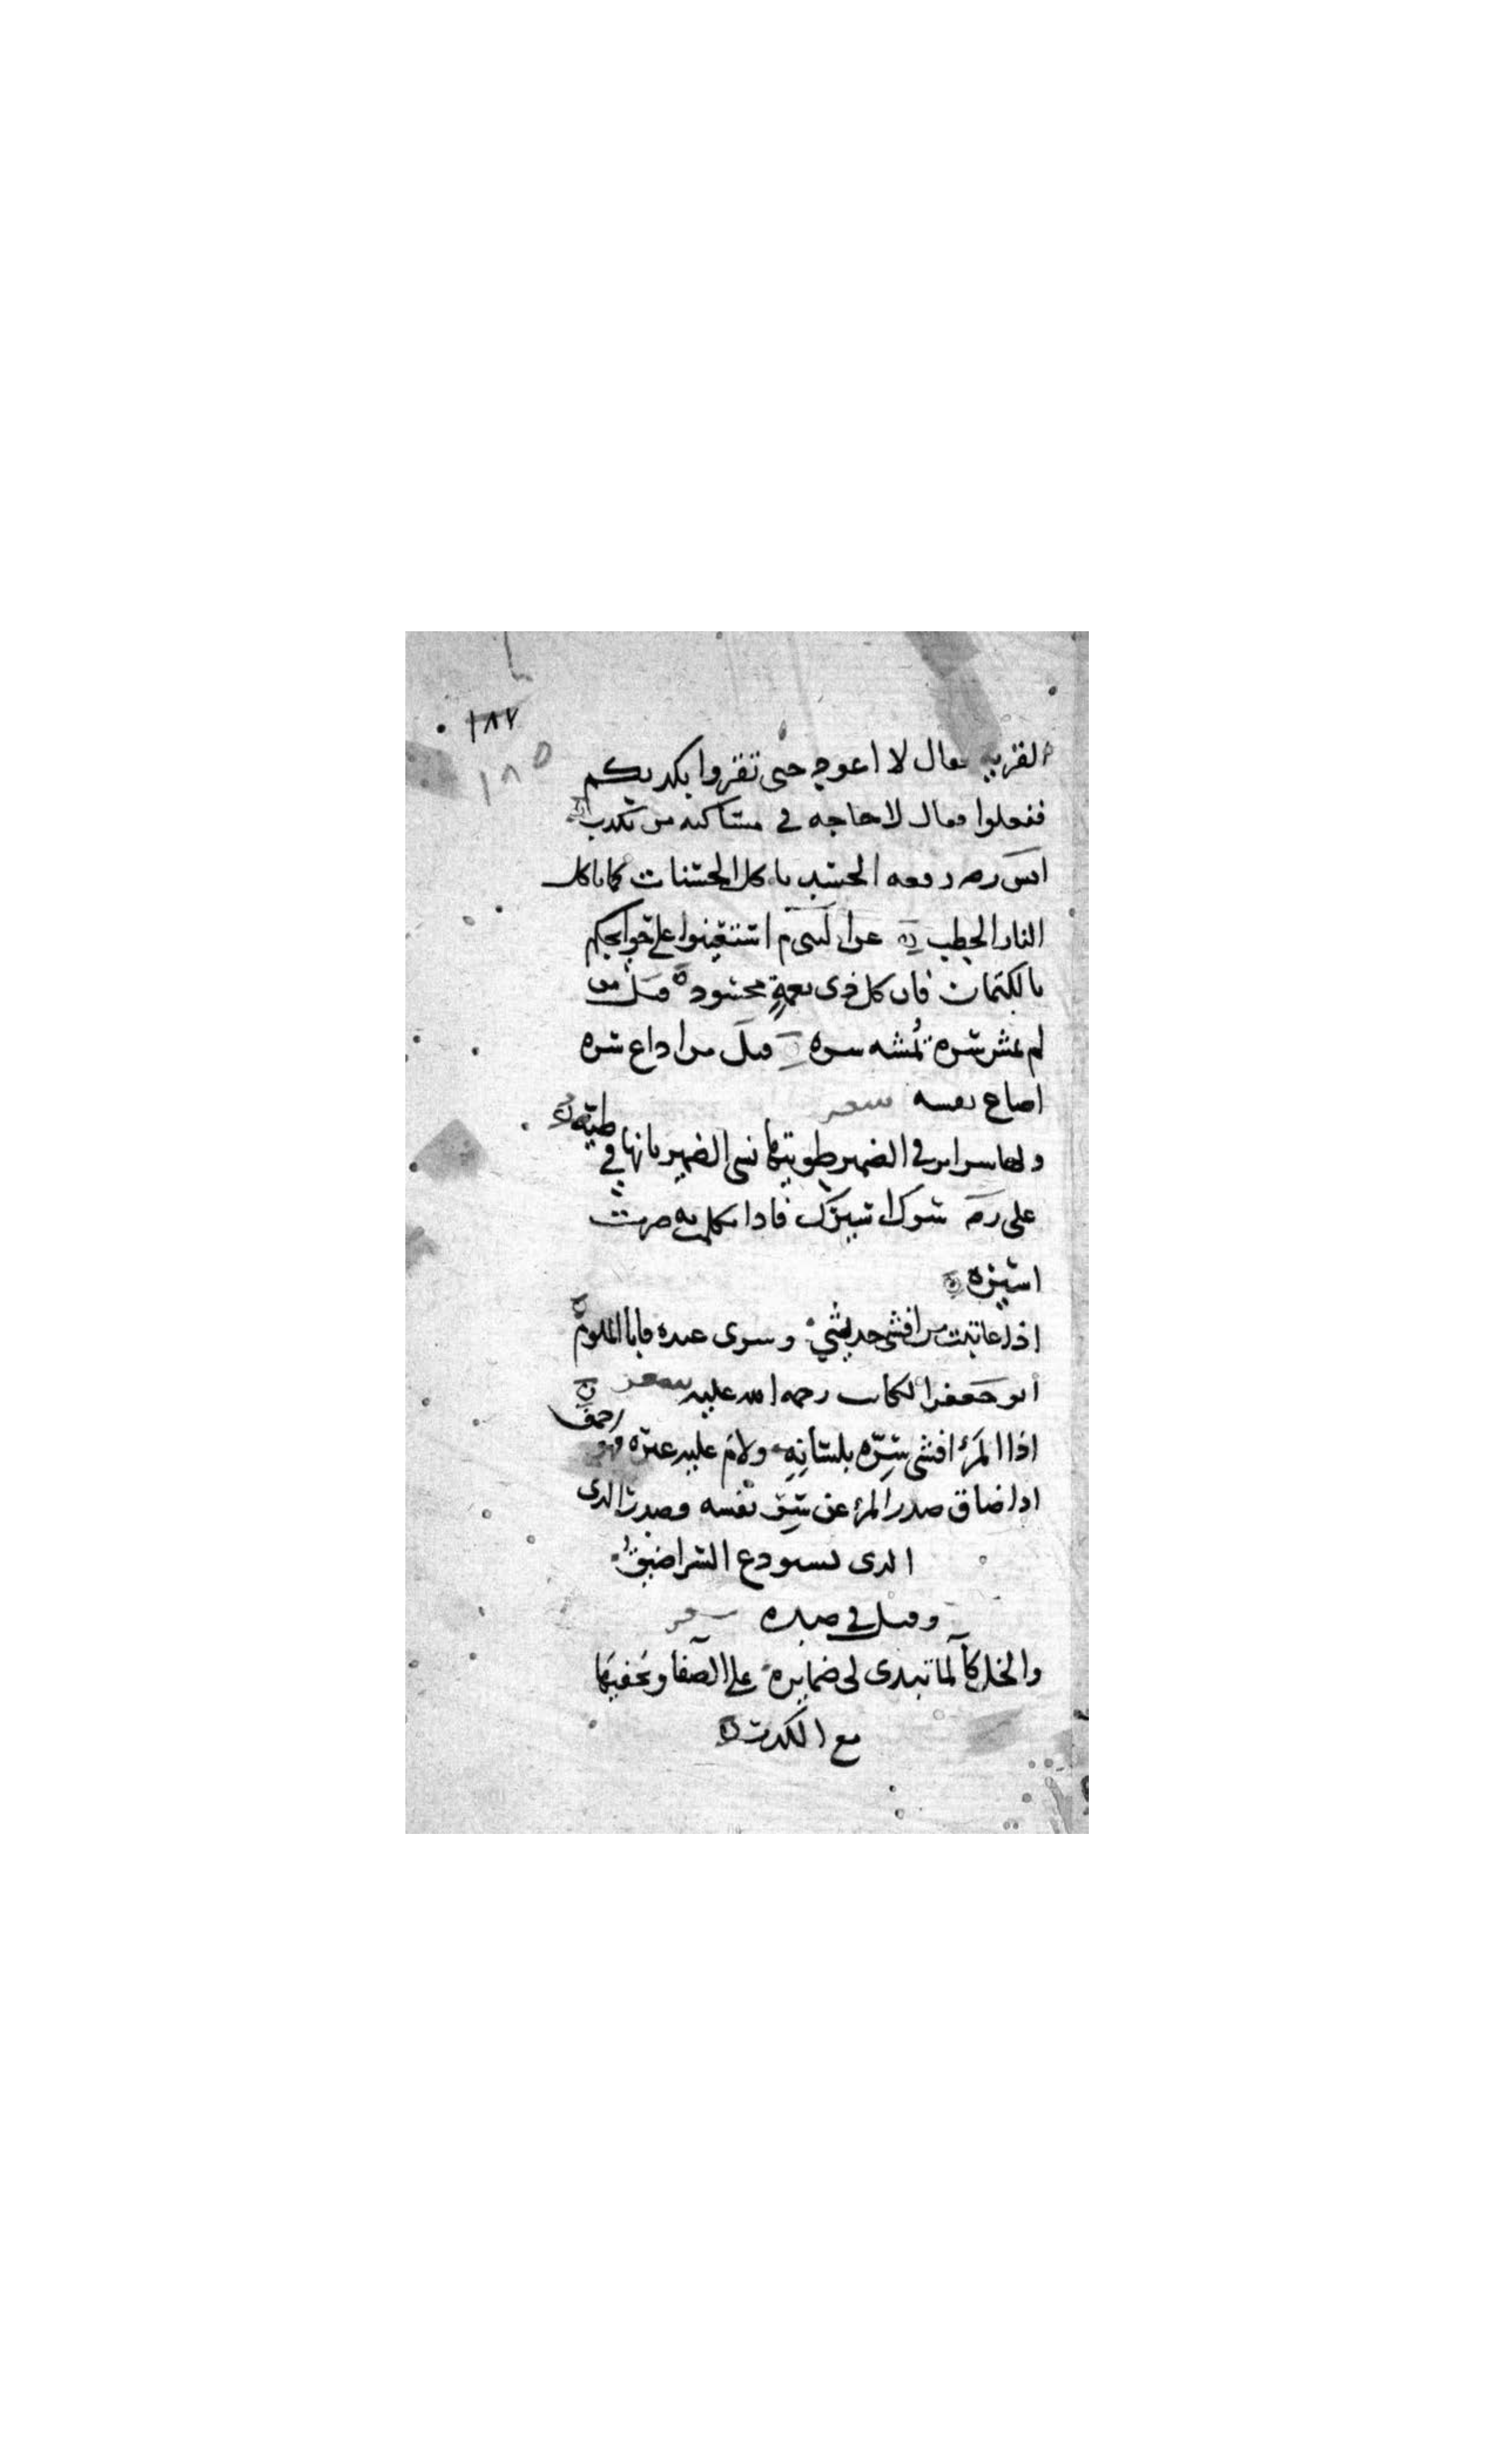 ١٨٧
١٨٥
القريه فقال لا اعود حتى تقروا بكذبكم
ففعلوا فقال لا حاجه في مساكنه من يكذب
انس رصه رفعه الحسد ياكل الحسنات كما ياكل
النار الحطب عن النبي م استعينوا على حوايجكم
بالكتمان فان كل ذي نعمةٍ محسود قيل من
لم يفش سره لم يشه سره قيل من اذاع سره
اضاع نفسه شعر
ولها سراير في الضمير طويتها نسي الضمير بانها في طيه
علي رصه سرك اسيرك فاذا تكلم به صرت
اسيره
اذا عاتبت من افشى حديثي وسري عنده فانا الملوم
ابو جعفر الكاتب رحمه الله عليه شعر
اذا المرء افشى سِرّه بلسانِهِ ولام عليه غيره فهو احمق
اذا ضاق صدر المرء عن سِر نفسه فصدر الذي
الذي يستودع السر اضيق
وقيل في ضده شعر
والخل كالما تبدي لي ضمايره على الصفا ويخفيها
مع الكدر